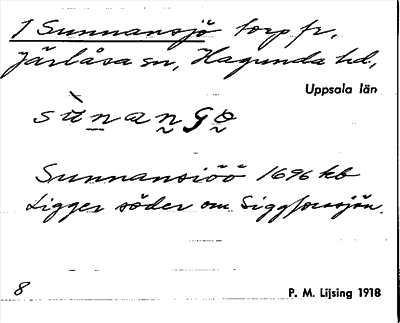 1 Sunnansjö torp fr,
Järlåsa sn, Hagunda hd,
Uppsala län
Sunnansiöö 1696 kb
Ligger söder om Siggforasjön.
8 P. M. Lijsing 1918